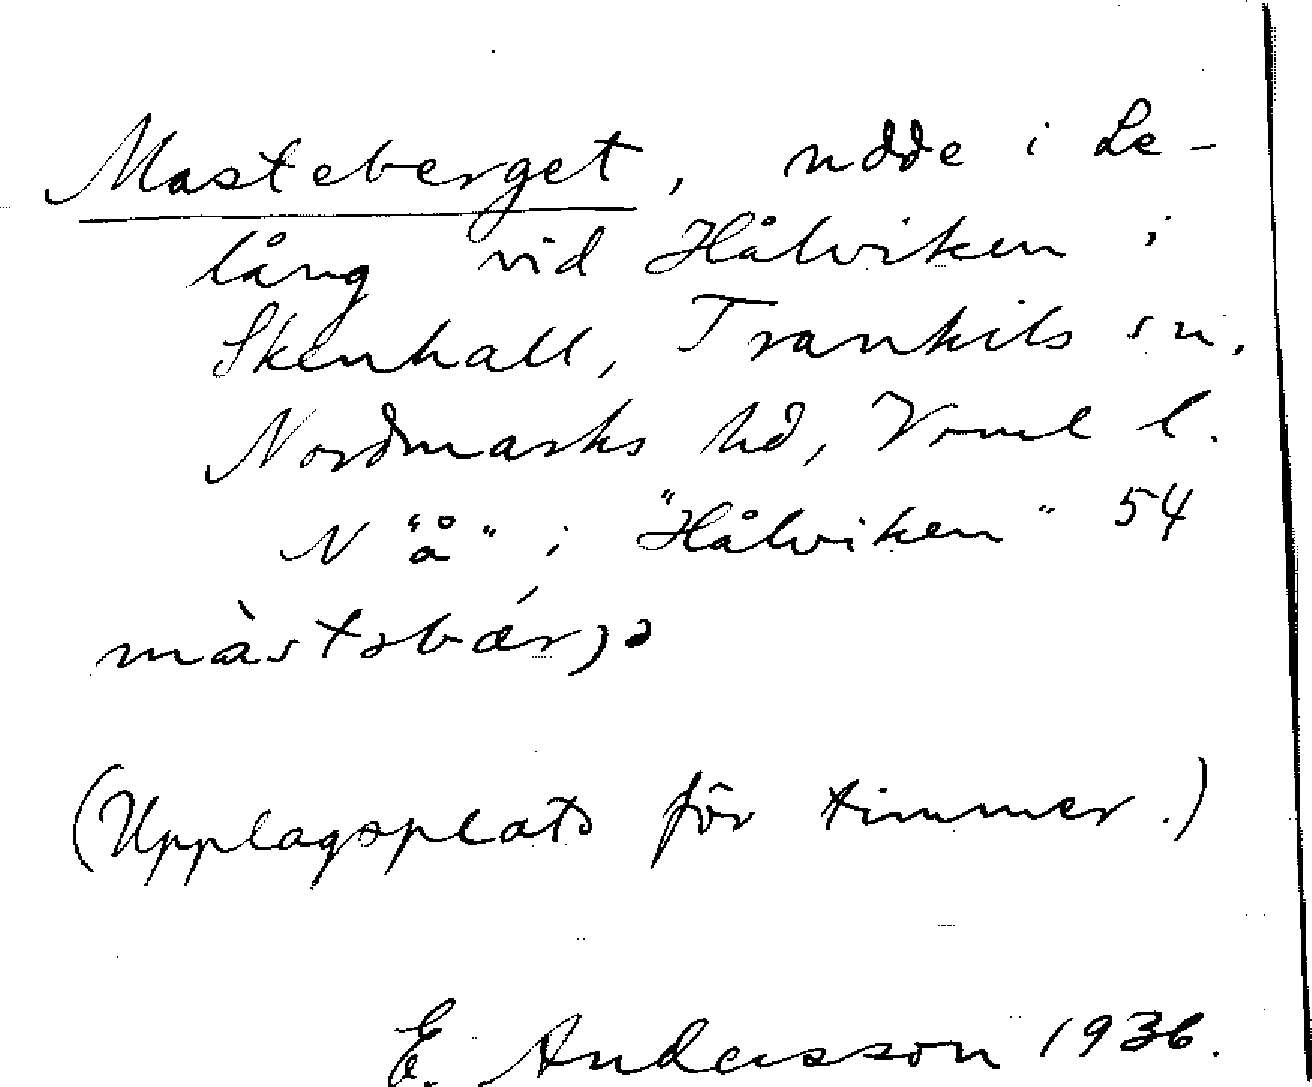 Masteberget, udde i Le-
lång vid Hålviken i
Skenhall, Trankils sn,
Nordmarks hd, Vrml l.
N "å" i "Hålviken" 54
(Upplagsplats för timmer.)
E. Andersson 1936.